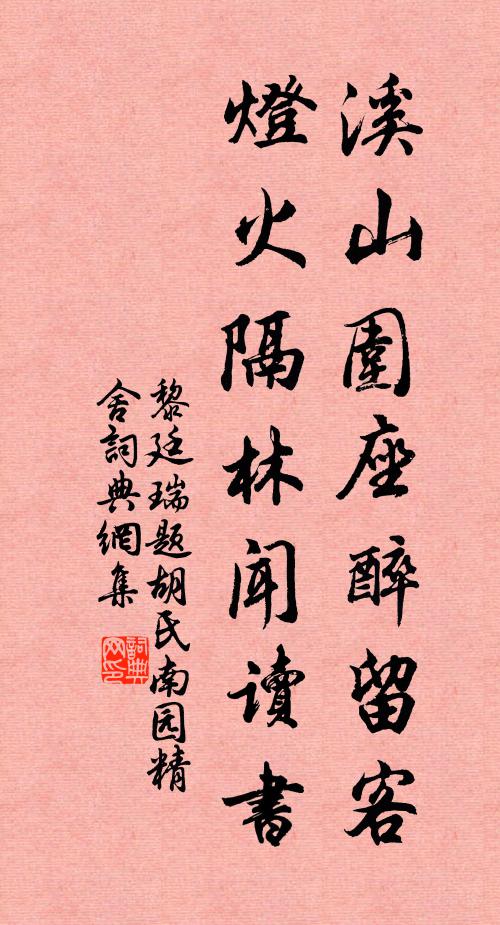 溪山圍座醉留客
燈火隔林聞读書
黎廷瑞题胡氏南园精
舍詞典網集
詞典
网印